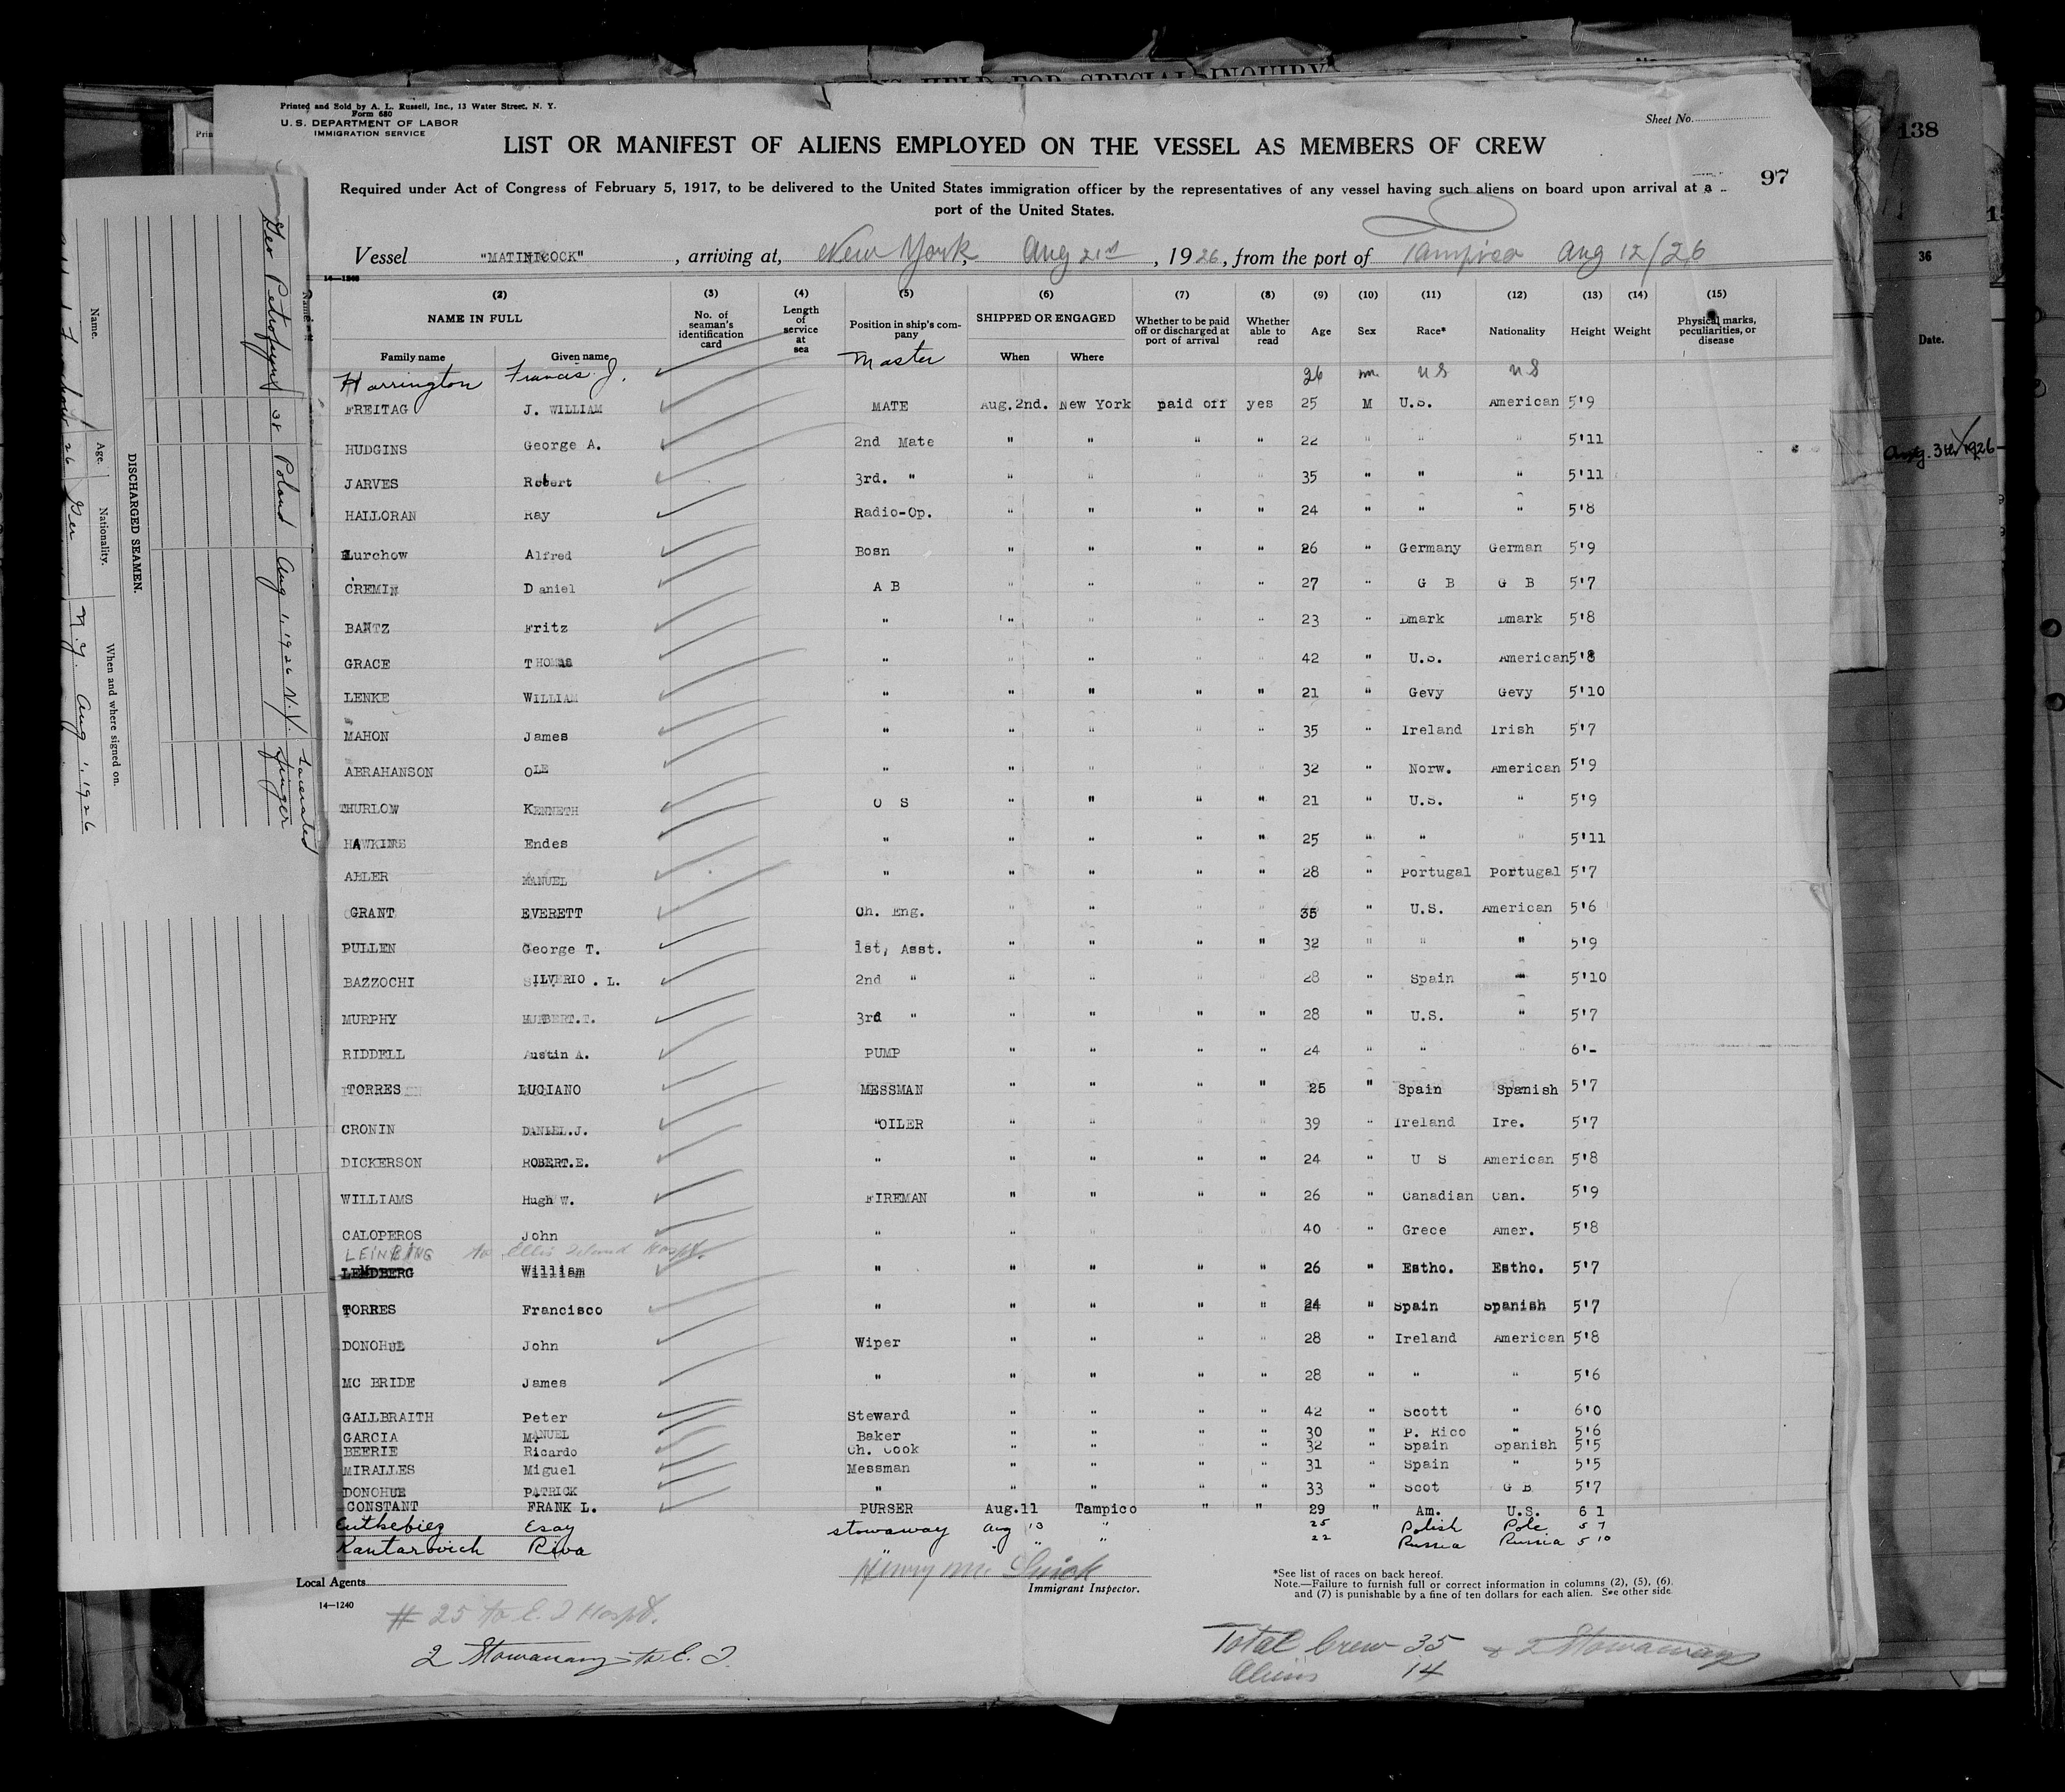 ALIENS HELD FOR SPECIAL INQUIRY
Printed and Sold by A. L. Russell, Inc., 13 Water Street, N. Y.
Form 680
U. S. DEPARTMENT OF LABOR
IMMIGRATION SERVICE
Sheet No.
LIST OR MANIFEST OF ALIENS EMPLOYED ON THE VESSEL AS MEMBERS OF CREW
97
Required under Act of Congress of February 5, 1917, to be delivered to the United States immigration officer by the representatives of any vessel having such aliens on board upon arrival at a
port of the United States.
Vessel "MATINICOCK", arriving at, New York, Aug 21st, 1926, from the port of Tampico Aug 12/26
(2) (3) (4) (5) (6) (7) (8) (9) (10) (11) (12) (13) (14) (15)
NAME IN FULL No. of seaman's identification card Length of service at sea Position in ship's company SHIPPED OR ENGAGED Whether to be paid off or discharged at port of arrival Whether able to read Age Sex Race* Nationality Height Weight Physical marks, peculiarities, or disease
Family name Given name When Where
Harrington Francis J. Master 26 m. US US
FREITAG J. WILLIAM MATE Aug.2nd. New York paid off yes 25 M U.S. American 5'9
HUDGINS George A. 2nd Mate " " " " 22 " " " 5'11
JARVES Robert 3rd. " " " " " 35 " " " 5'11
HALLORAN Ray Radio-Op. " " " " 24 " " " 5'8
Lurchow Alfred Bosn " " " " 26 " Germany German 5'9
CREMIN Daniel A B " " " " 27 " G B G B 5'7
BANTZ Fritz " " " " " 23 " Dmark Dmark 5'8
GRACE THOMAS " " " " " 42 " U.S. American 5'8
LENKE WILLIAM " " " " " 21 " Gevy Gevy 5'10
MAHON James " " " " " 35 " Ireland Irish 5'7
ABRAHANSON OLE " " " " " 32 " Norw. American 5'9
THURLOW KENNETH O S " " " " 21 " U.S. " 5'9
HAWKINS Endes " " " " " 25 " " " 5'11
ABLER MANUEL " " " " " 28 " Portugal Portugal 5'7
GRANT EVERETT Ch. Eng. " " " " 35 " U.S. American 5'6
PULLEN George T. 1st, Asst. " " " " 32 " " " 5'9
BAZZOCHI SILVERIO . L. 2nd " " " " " 28 " Spain " 5'10
MURPHY HUBERT.T. 3rd " " " " " 28 " U.S. " 5'7
RIDDELL Austin A. PUMP " " " " 24 " " " 6'-
TORRES LUCIANO MESSMAN " " " " 25 " Spain Spanish 5'7
CRONIN DANIEL.J. "OILER " " " " 39 " Ireland Ire. 5'7
DICKERSON ROBERT.E. " " " " " 24 " U S American 5'8
WILLIAMS Hugh W. FIREMAN " " " " 26 " Canadian Can. 5'9
CALOPEROS John " " " " " 40 " Grece Amer. 5'8
to Ellis Island Hospt.
LENDBERG William " " " " " 26 " Estho. Estho. 5'7
TORRES Francisco " " " " " 24 " Spain Spanish 5'7
DONOHUE John Wiper " " " " 28 " Ireland American 5'8
MC BRIDE James " " " " " 28 " " " 5'6
GALLBRAITH Peter Steward " " " " 42 " Scott " 6'0
GARCIA MANUEL Baker " " " " 30 " P. Rico " 5'6
BEERIE Ricardo Ch. Cook " " " " 32 " Spain Spanish 5'5
MIRALLES Miguel Messman " " " " 31 " Spain " 5'5
DONOHUE PATRICK " " " " " 33 " Scot G B 5'7
CONSTANT FRANK L. PURSER Aug.11 Tampico " " 29 " Am. U.S. 6 1
Esay stowaway Aug 13 " 25 Polish Pole 5 7
Kantarovich Riva " " " 22 Russia Russia 5 10
Local Agents
Henry Mc
Immigrant Inspector.
14-1240
*See list of races on back hereof.
Note.—Failure to furnish full or correct information in columns (2), (5), (6),
and (7) is punishable by a fine of ten dollars for each alien. See other side.
# 25 to E. I Hospt.
2 Stowaways to E. I.
Total Crew 35 & 2 Stowaways
Aliens 14
DISCHARGED SEAMEN.
Name. Age. Nationality. When and where signed on.
26 Ger N.Y. Aug 1, 1926
Geo 38 Poland Aug 1, 1926 N.Y. Lacerated finger
138
36
Date.
Aug. 31st/1926